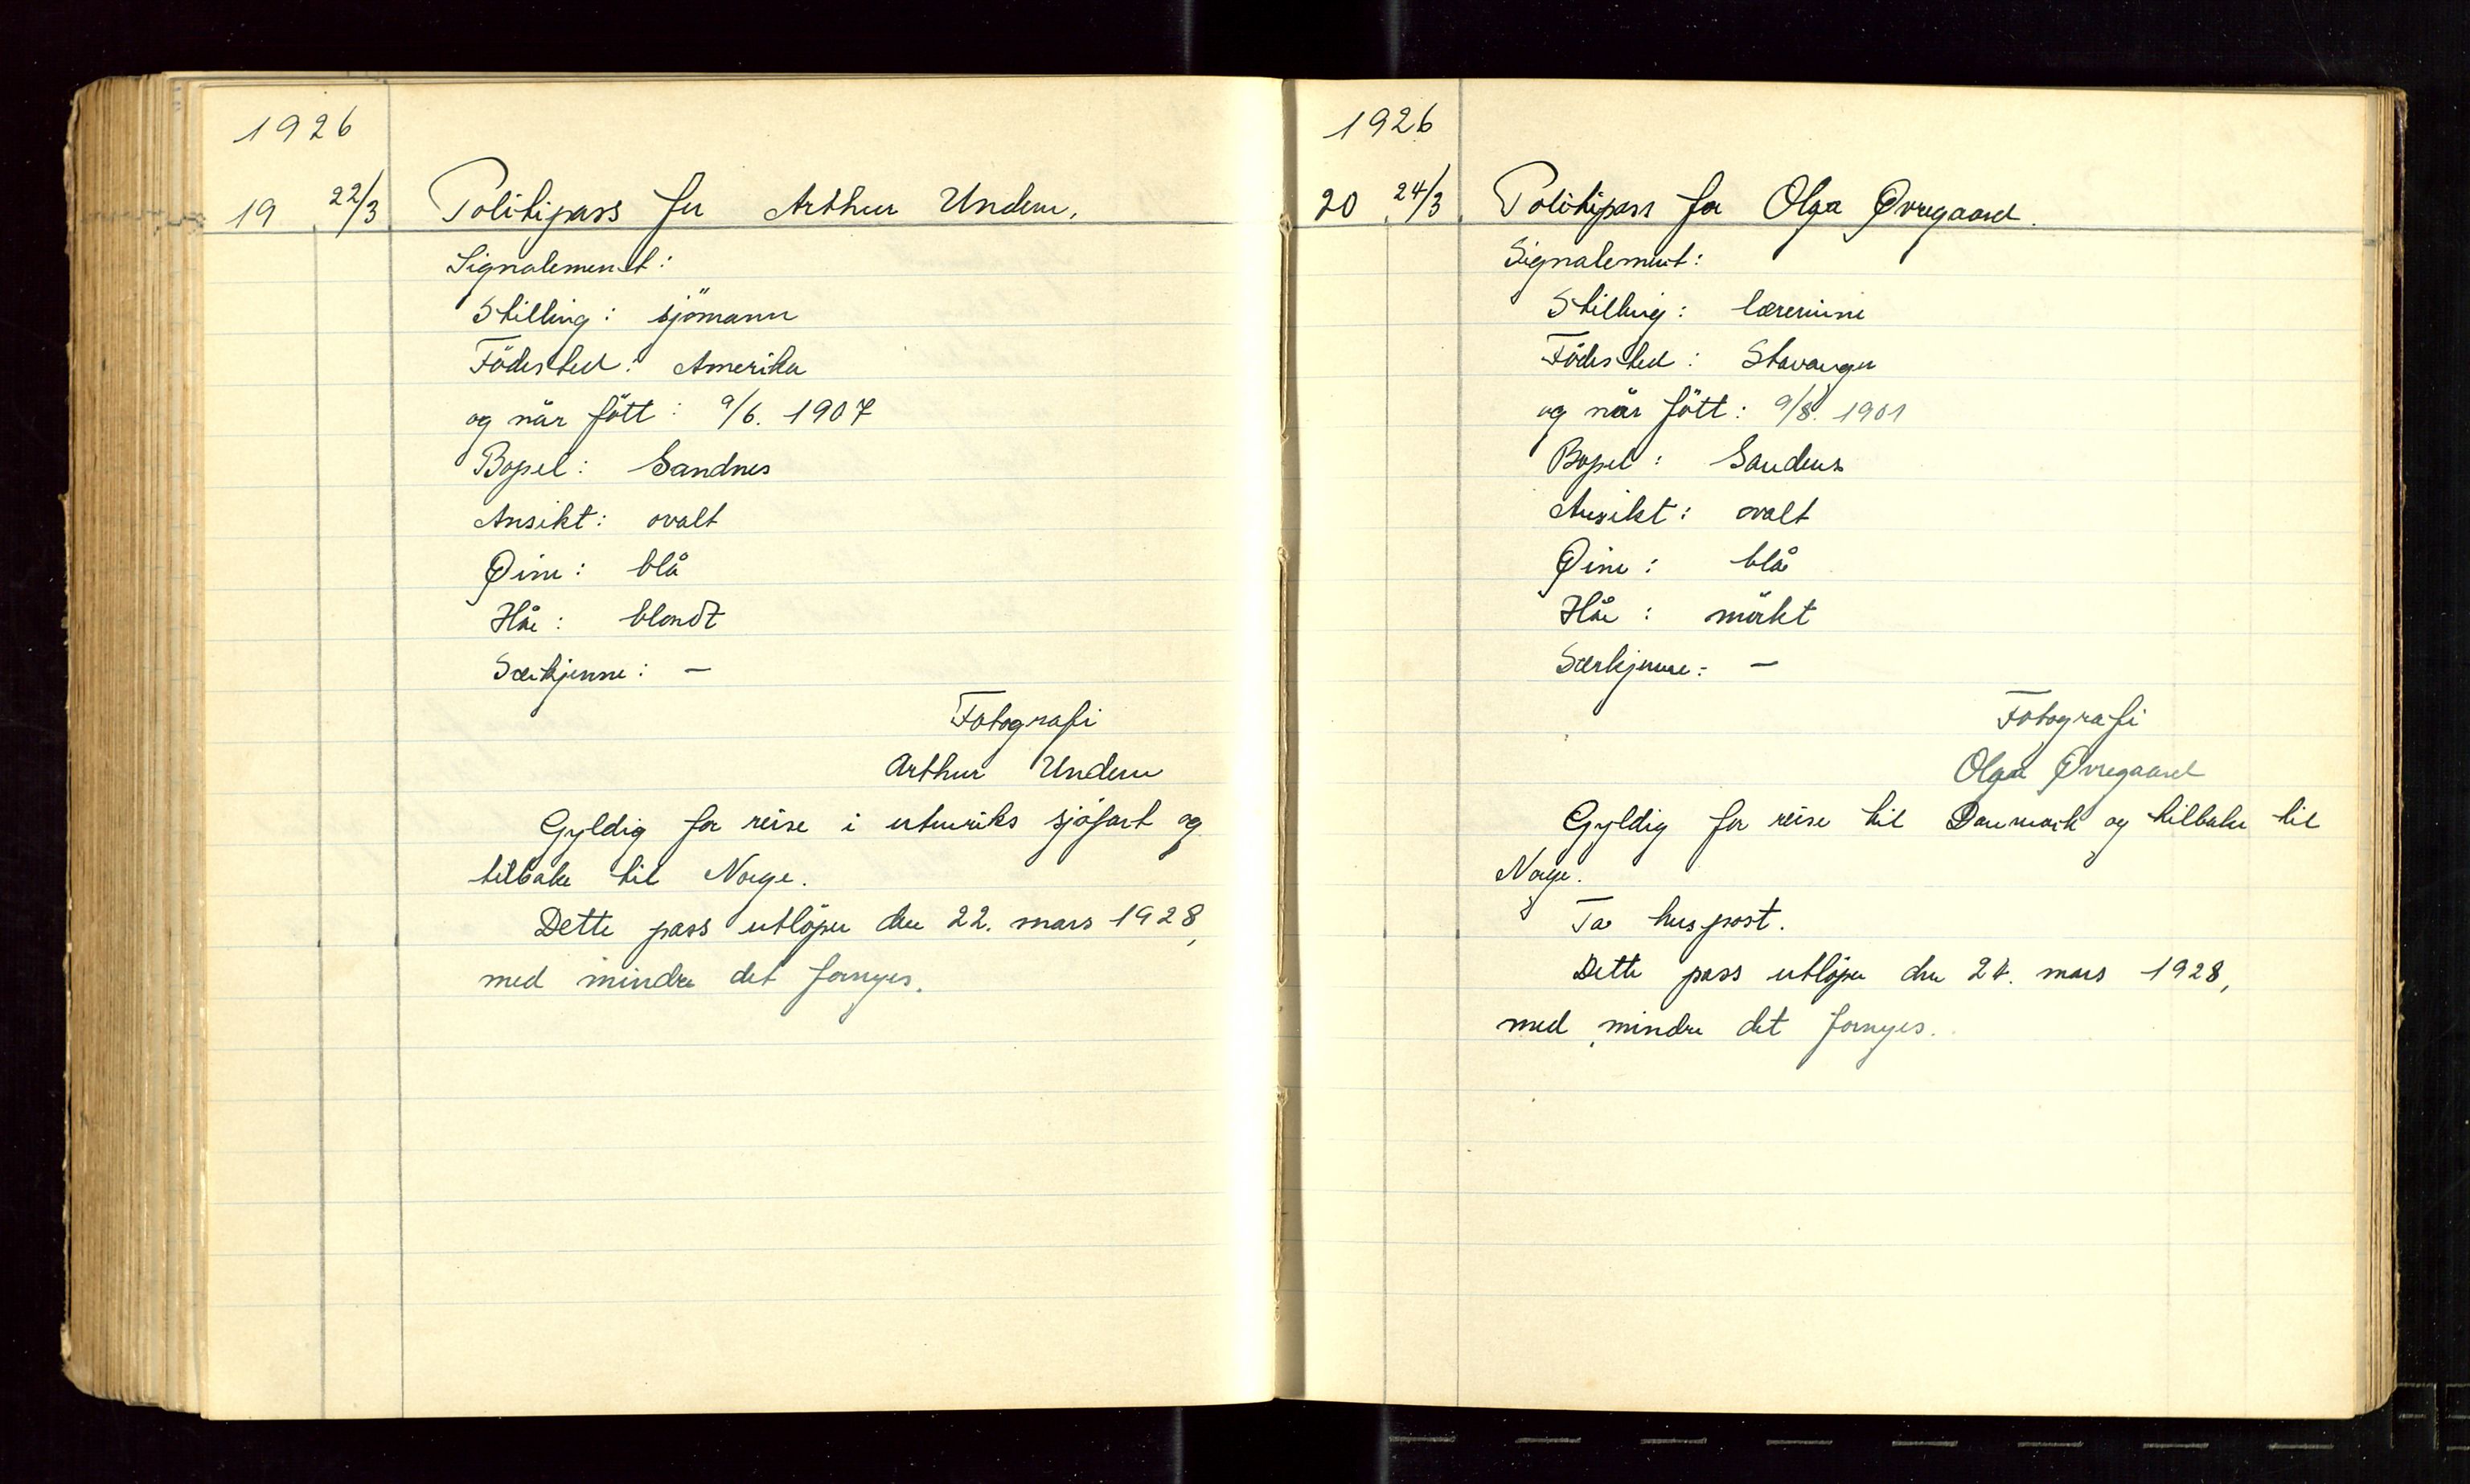 1926
19 22/3 Politipass for Arthur Undem.
Signalement:
Stilling: sjömann
Födested: Amerika
og når fött: 9/6. 1907
Bopel: Sandnes
Ansikt: ovalt
Øine: blå
Hår: blondt
Særkjenne: —
Fotografi
Arthur Undem
Gyldig for reise i utenriks sjöfart og
tilbake til Norge.
Dette pass utlöper den 22. mars 1928,
med mindre det fornyes.
1926
20 24/3 Politipass for Olga Øvregaard.
Signalement:
Stilling: lærerinne
Födested: Stavanger
og når fött: 9/8. 1901
Bopel: Sandnes
Ansikt: ovalt
Øine: blå
Hår: mörkt
Særkjenne: —
Fotografi
Olga Øvregaard
Gyldig for reise til Danmark og tilbake til
Norge.
Ta huspost.
Dette pass utlöper den 24. mars 1928,
med mindre det fornyes.